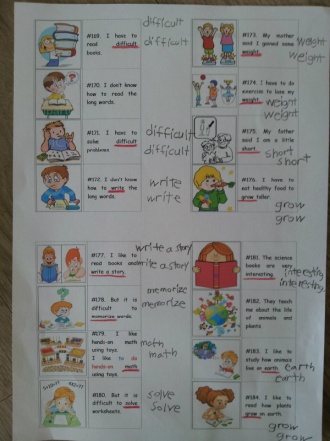 #169. I have to
read difficult
books.
difficult
difficult
#170. I don't know
how to read the
long words.
#171. I have to
solve difficult
problems.
difficult
difficult
#172. I don't know
how to write the
long words.
write
write
#173. My mother
said I gained some
weight.
weight
weight
#174. I have to do
exercise to lose my
weight.
weight
weight
#175. My father
said I am a little
short.
short
short
#176. I have to
eat healthy food to
grow taller.
grow
grow
#177. I like to
read books and
write a story.
write a story
write a story
#178. But it is
difficult to
memorize words.
memorize
memorize
#179. I like
hands-on math
using toys.
I like to do
hands-on math
using toys.
math
math
#180. But it is
difficult to solve
worksheets.
solve
solve
#181. The science
books are very
interesting.
interesting
interesting
#182. They teach
me about the life
of animals and
plants.
#183. I like to
study how animals
live on earth.
earth
earth
#184. I like to
read how plants
grow on earth.
grow
grow